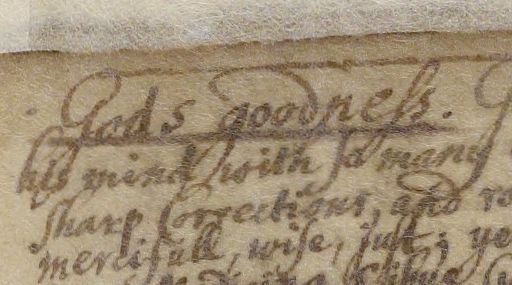 Gods goodneſs.
his mind with so many
sharp corrections, and
mercifull, wiſe, juſt; ye